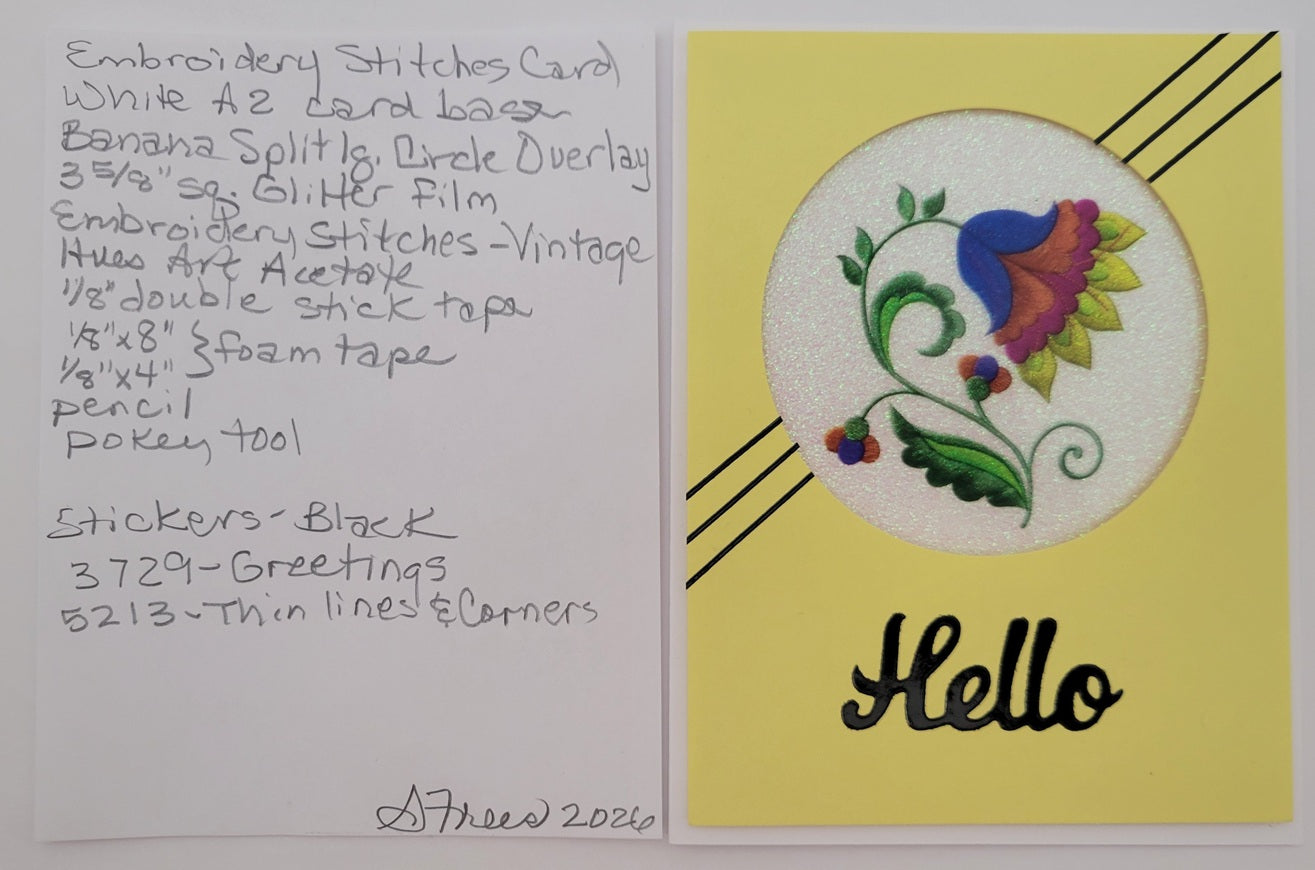 Embroidery Stitches Card
White A2 card base
Banana Split lg. Circle Overlay
3 5/8" sq. Glitter film
Embroidery Stitches - Vintage
Hues Art Acetate
1/8" double stick tape
1/8" x 8" } foam tape
1/8" x 4"
pencil
pokey tool
Stickers - Black
3729 - Greetings
5213 - Thin lines & Corners
SFrees 2026
Hello